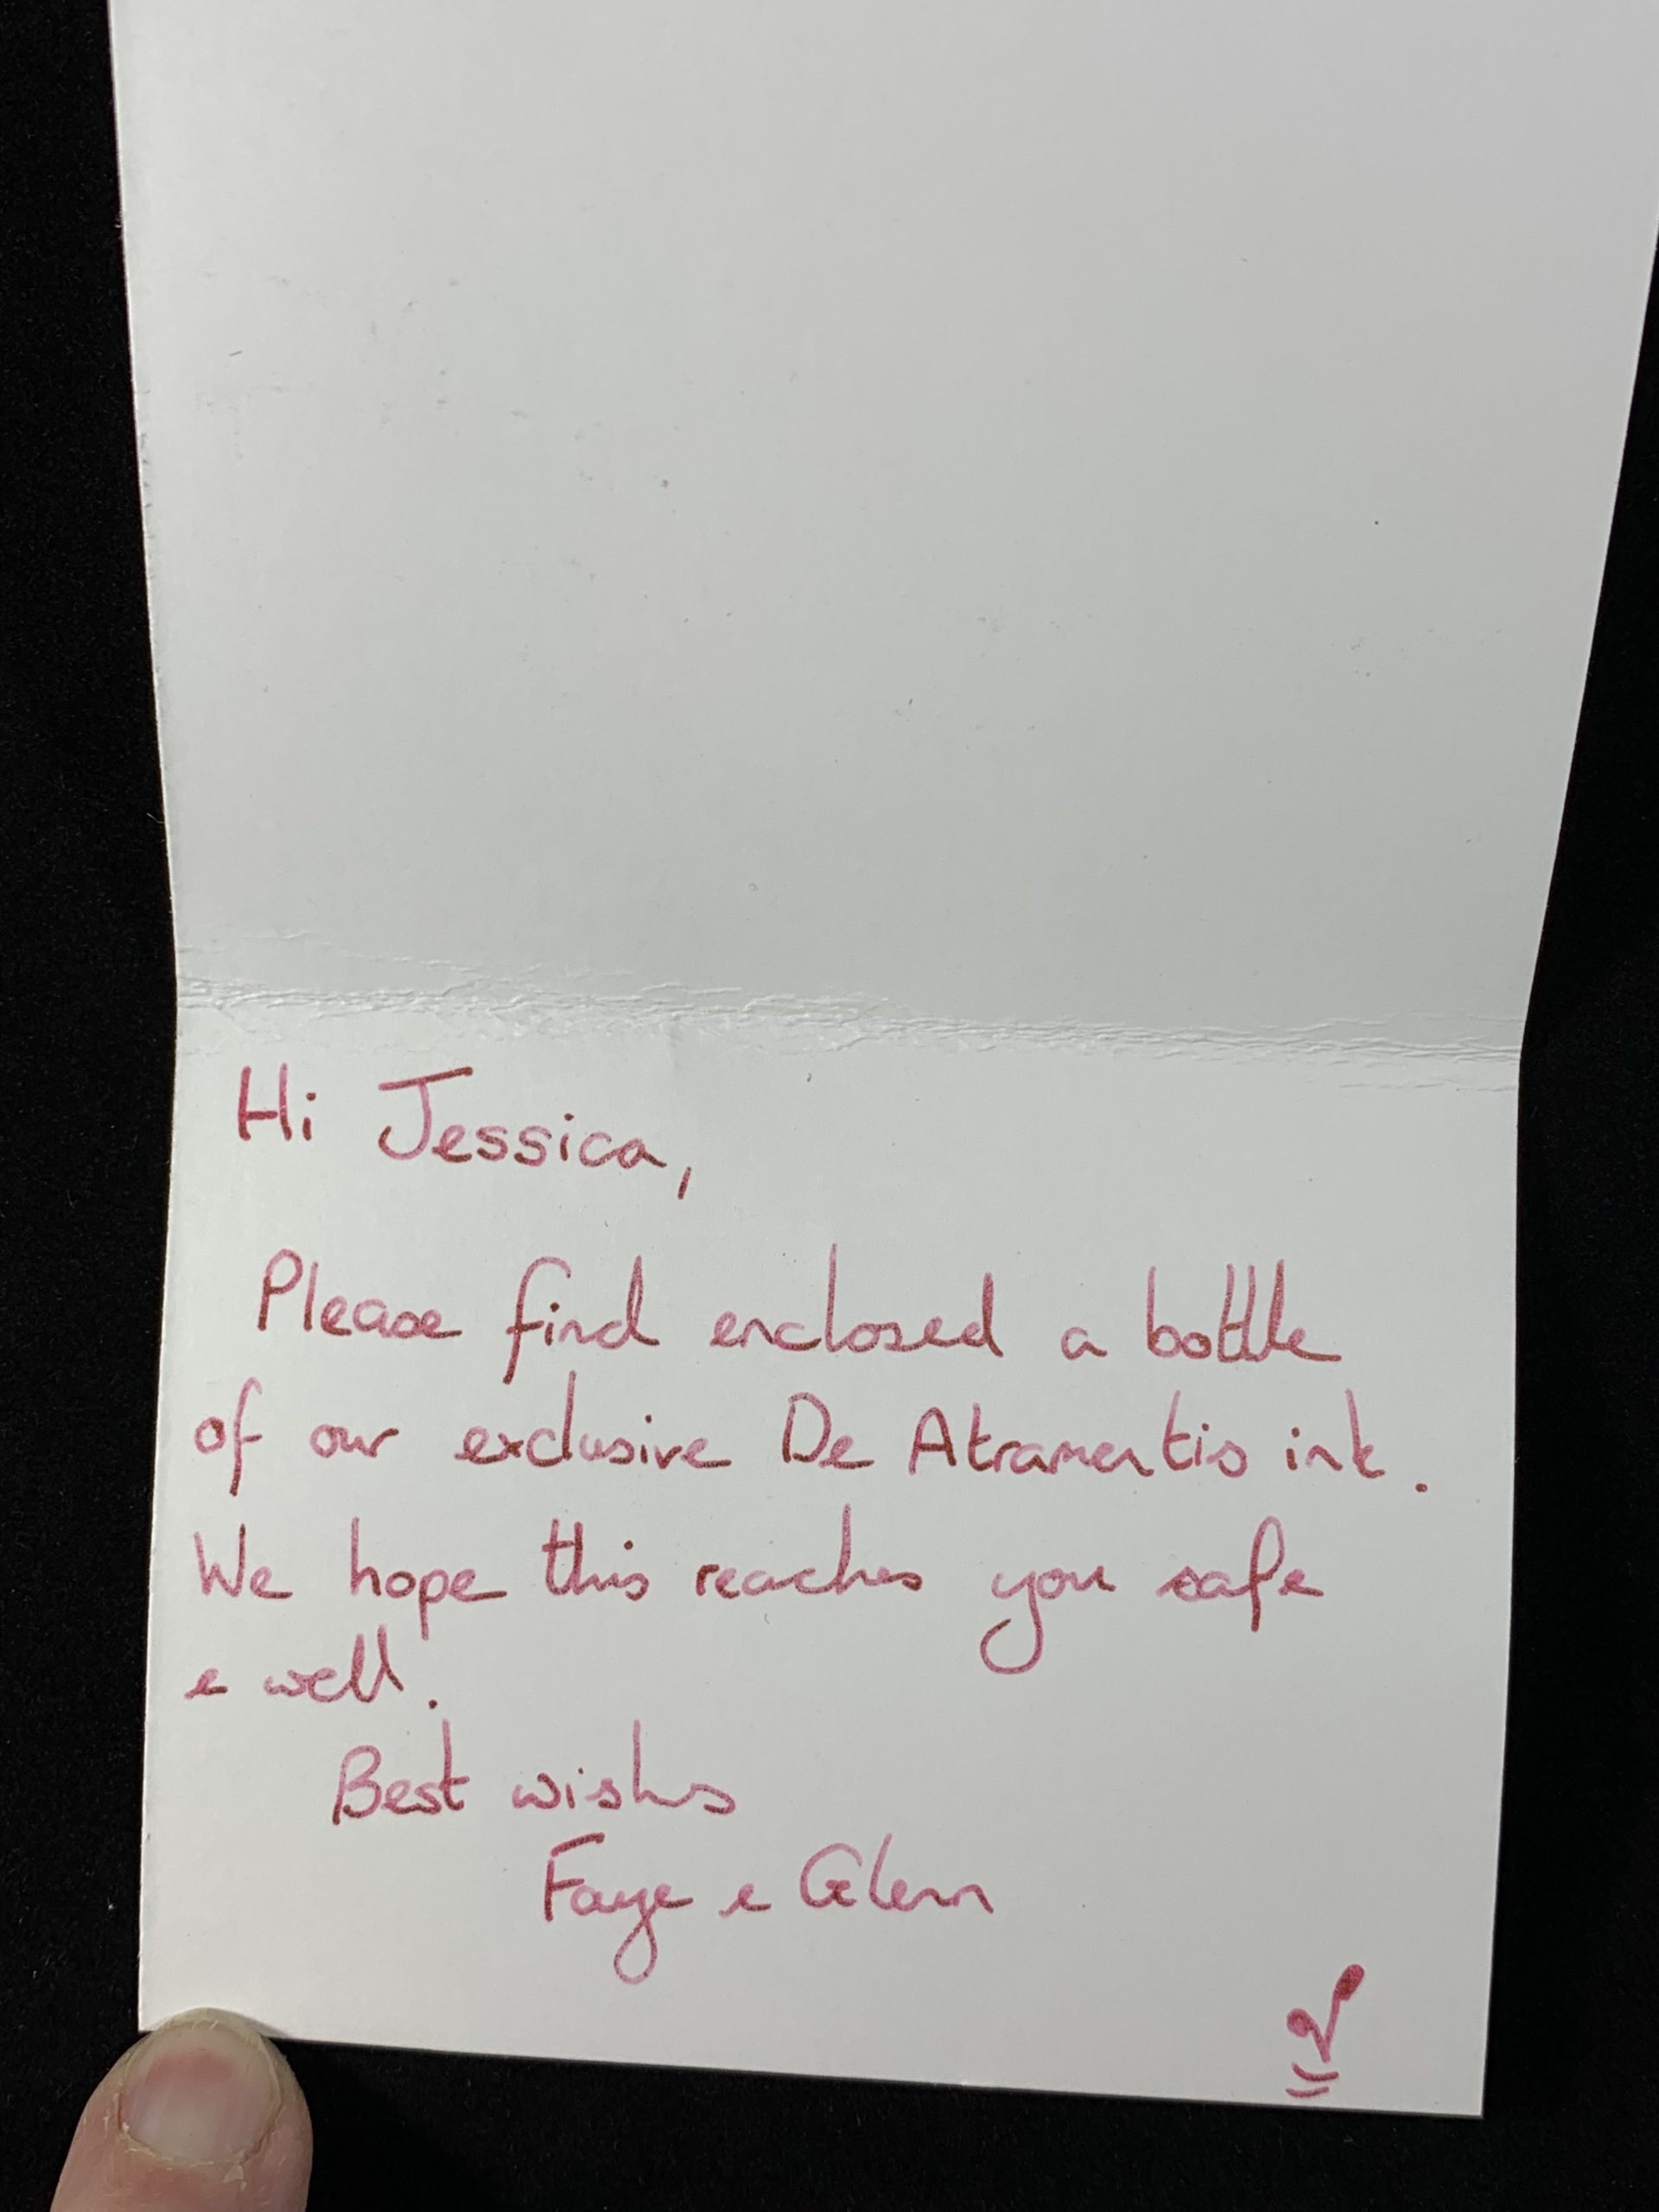 Hi Jessica,
Please find enclosed a bottle
of our exclusive De Atramentis ink.
We hope this reaches you safe
& well.
Best wishes
Faye & Glenn